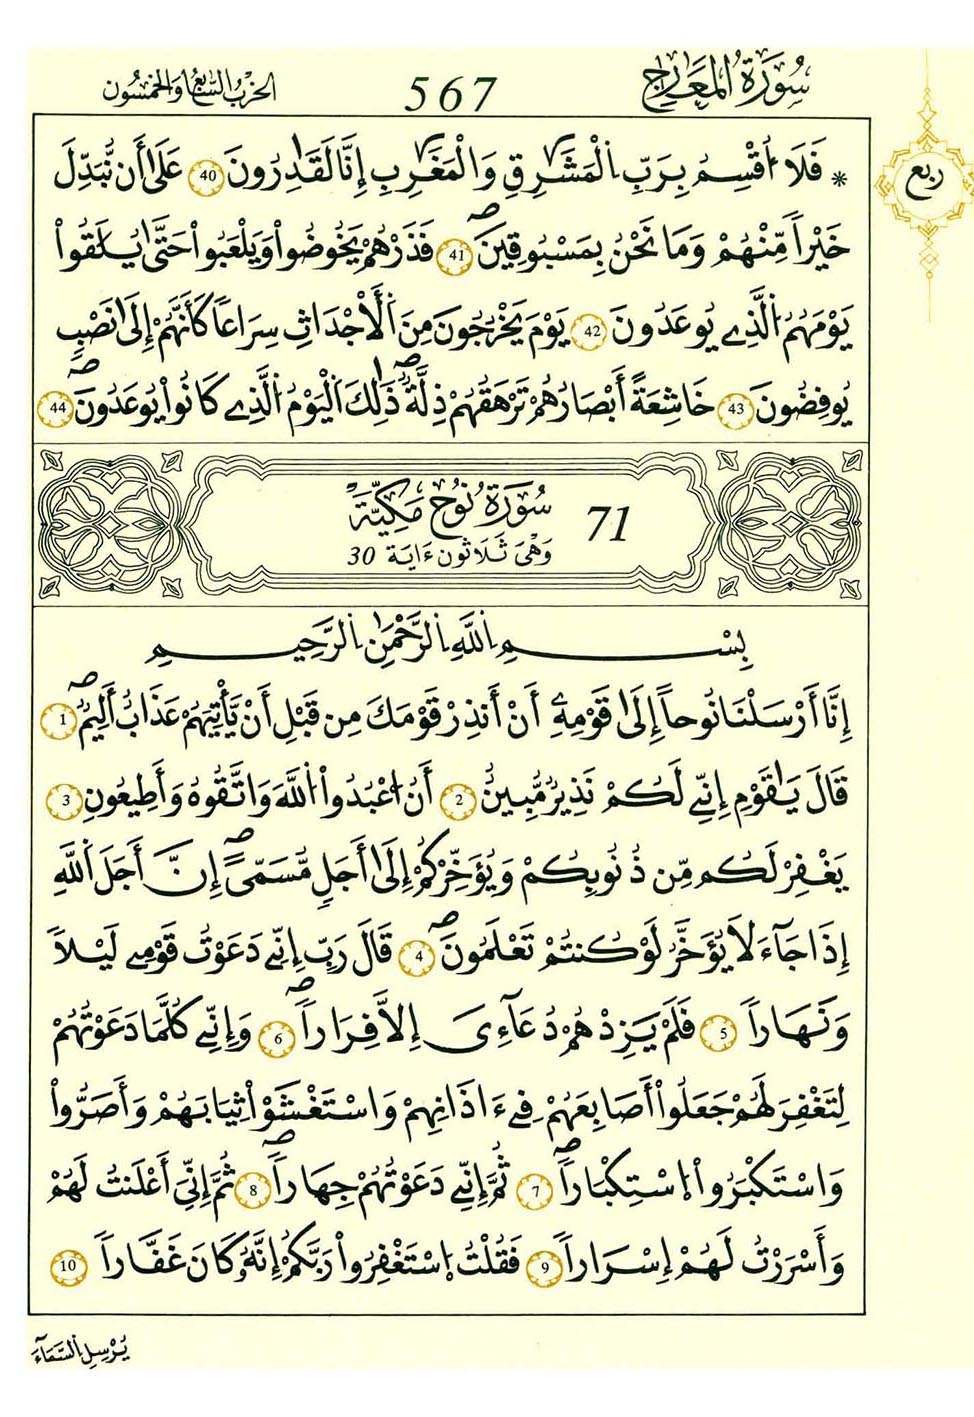 سُورَةُ الْمَعَارِجِ 567 الحزب السابع والخمسون
ربع
* فَلَا أُقْسِمُ بِرَبِّ اِلْمَشَٰرِقِ وَالْمَغَٰرِبِ إِنَّا لَقَٰدِرُونَ 40 عَلَىٰ أَن نُّبَدِّلَ
خَيْراً مِّنْهُمْ وَمَا نَحْنُ بِمَسْبُوقِينَۖ 41 فَذَرْهُمْ يَخُوضُواْ وَيَلْعَبُواْ حَتَّىٰ يُلَٰقُواْ
يَوْمَهُمُ اُلَّذِے يُوعَدُونَ 42 يَوْمَ يَخْرُجُونَ مِنَ اَلْأَجْدَاثِ سِرَاعاً كَأَنَّهُمْ إِلَىٰ نَصْبٍ
يُوفِضُونَ 43 خَاشِعَةً أَبْصَارُهُمْ تَرْهَقُهُمْ ذِلَّةٌۖ ذَٰلِكَ اَلْيَوْمُ اُلَّذِے كَانُواْ يُوعَدُونَۖ 44
سُورَةُ نُوحٍ مَكِّيَّة 71
وَهْيَ ثَلَاثُون ءَايَة 30
بِسْمِ اِللَّهِ اِلرَّحْمَٰنِ اِلرَّحِيمِ
إِنَّا أَرْسَلْنَا نُوحاً إِلَىٰ قَوْمِهِۦ أَنْ أَنذِرْ قَوْمَكَ مِن قَبْلِ أَنْ يَّأْتِيَهُمْ عَذَابٌ أَلِيمٌۖ 1
قَالَ يَٰقَوْمِ إِنِّے لَكُمْ نَذِيرٌ مُّبِينٌ 2 أَنُ اُعْبُدُواْ اُللَّهَ وَاتَّقُوهُ وَأَطِيعُونِ 3
يَغْفِرْ لَكُم مِّن ذُنُوبِكُمْ وَيُؤَخِّرْكُمْ إِلَىٰ أَجَلٍ مُّسَمّىًۖ إِنَّ أَجَلَ اَللَّهِ
إِذَا جَآءَ لَا يُؤَخَّرُ لَوْ كُنتُمْ تَعْلَمُونَۖ 4 قَالَ رَبِّ إِنِّے دَعَوْتُ قَوْمِے لَيْلاً
وَنَهَاراً 5 فَلَمْ يَزِدْهُمْ دُعَآءِىَ إِلَّا فِرَاراًۖ 6 وَإِنِّے كُلَّمَا دَعَوْتُهُمْ
لِتَغْفِرَ لَهُمْ جَعَلُواْ أَصَابِعَهُمْ فِےٓ ءَاذَانِهِمْ وَاسْتَغْشَوْاْ ثِيَابَهُمْ وَأَصَرُّواْ
وَاسْتَكْبَرُواْ اُسْتِكْبَاراًۖ 7 ثُمَّ إِنِّے دَعَوْتُهُمْ جِهَاراًۖ 8 ثُمَّ إِنِّيَ أَعْلَنتُ لَهُمْ
وَأَسْرَرْتُ لَهُمْ إِسْرَاراً 9 فَقُلْتُ اُسْتَغْفِرُواْ رَبَّكُمْ إِنَّهُۥ كَانَ غَفَّاراً 10
يُرْسِلِ اِلسَّمَآءَ